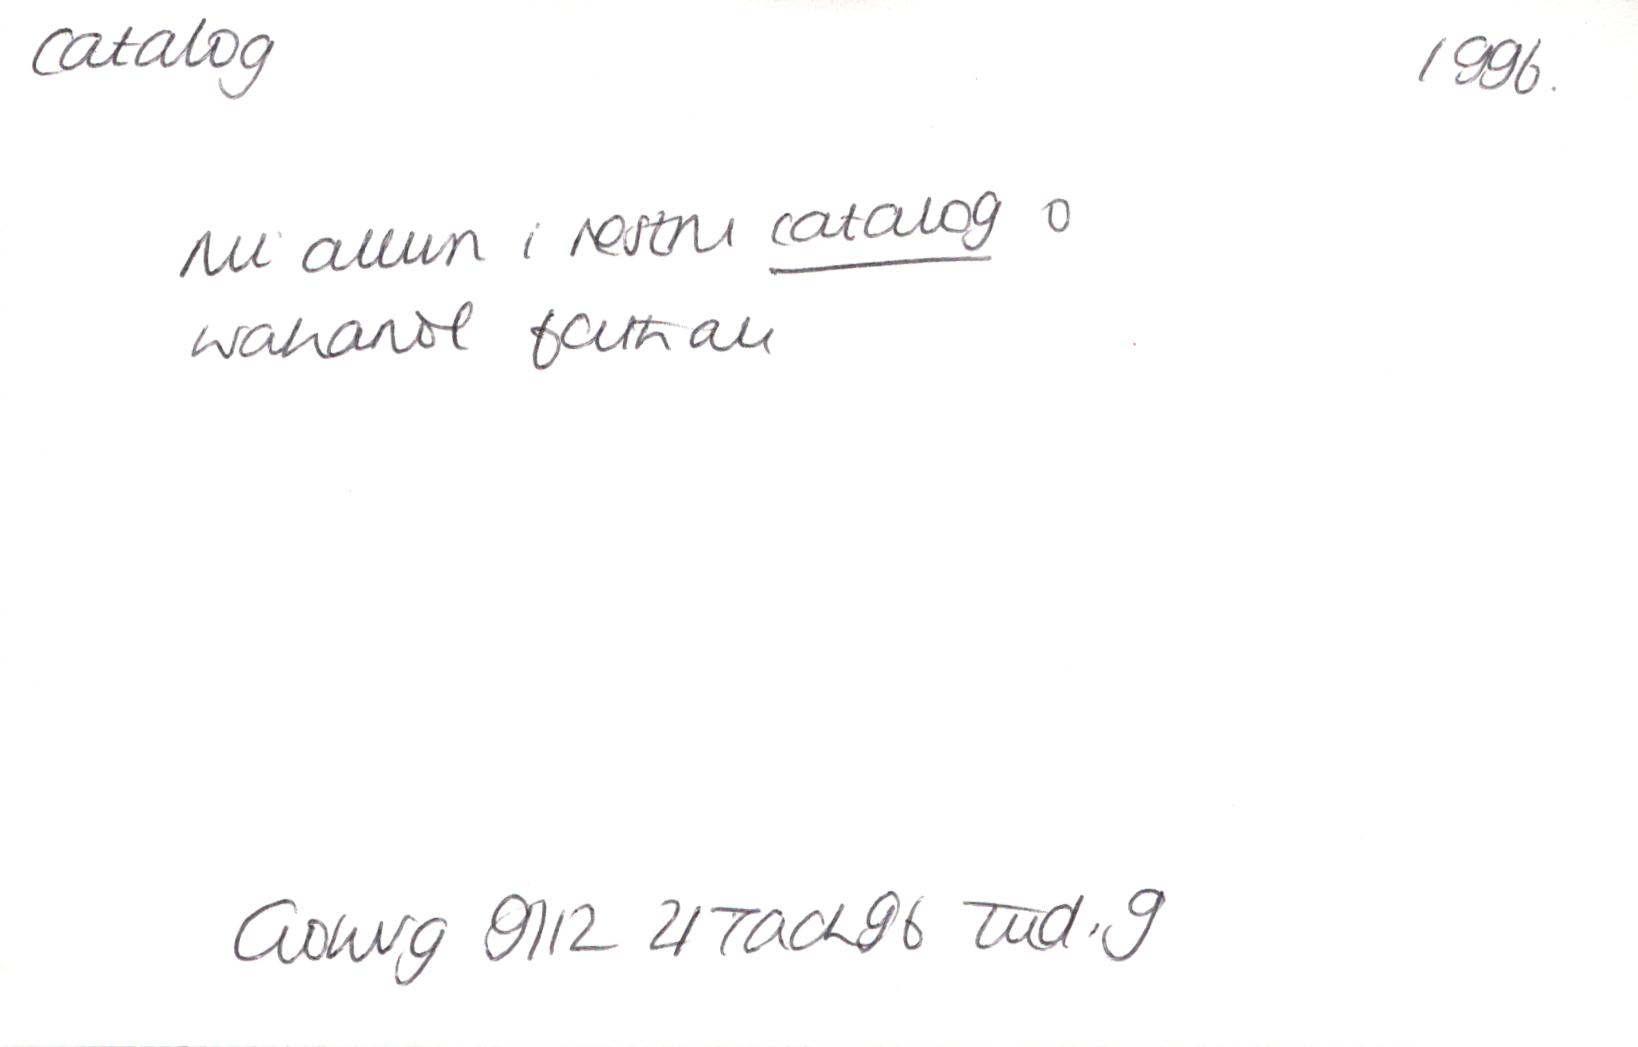 catalog 1996.
Ni allwn i restru catalog o
wahanol feithau
Golwg 9/12 21 Tach 96 Tud. 9